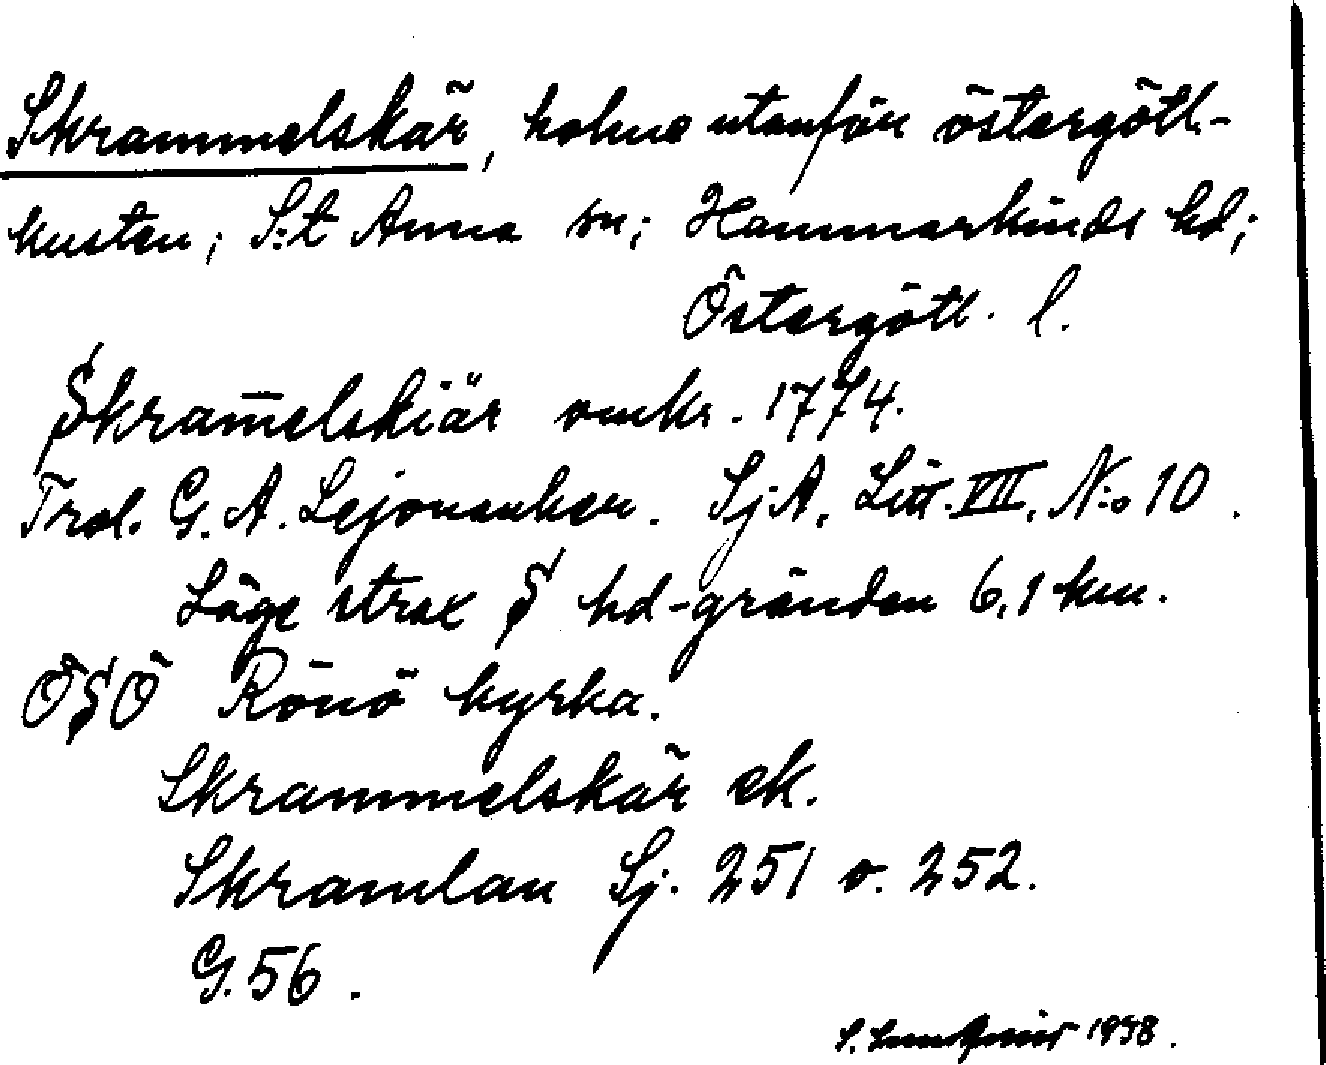 Skrammelskär, holme utanför östergötl.-
kusten; S:t Anna sn; Hammarkinds hd;
Östergötl. l.
Skram̅elskiär omkr. 1774.
Trol. G. A. Lejonanker. SjA, Litt. VII, N:o 10.
Läge strax S hd-gränden 6,1 km.
ÖSÖ Rönö kyrka.
Skrammelskär ek.
Skramlan Sj. 251 o. 252.
G. 56.
S. Lundqvist 1938.